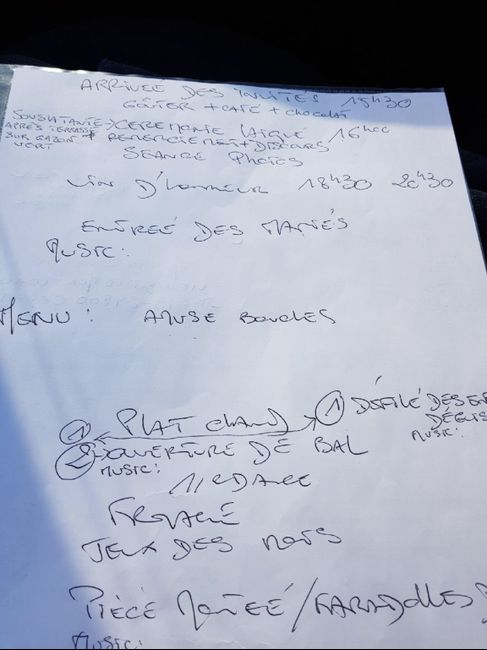 ARRIVÉE DES INVITÉS 15H30
GOÛTER + CAFÉ + chocolat
SOUS LA TANTE CEREMONIE LAIQUE 16H00
APRÈS TERRASSE
SUR GAZON + REMERCIEMENT + DISCOURS
VERT
SÉANCE PHOTOS
VIN D'HONNEUR 18H30 20H30
ENTREÉ DES MARIÉS
MUSIC:
MENU : AMUSE BOUCHES
① PLAT CHAUD ① DÉFILÉ DES EN
DÉGUIS
MUSIC:
② OUVERTURE DE BAL
MUSIC:
FROMAGE
JEUX DES MOTS
PIÈCE MONTEÉ / FARANDOLLES
MUSIC: